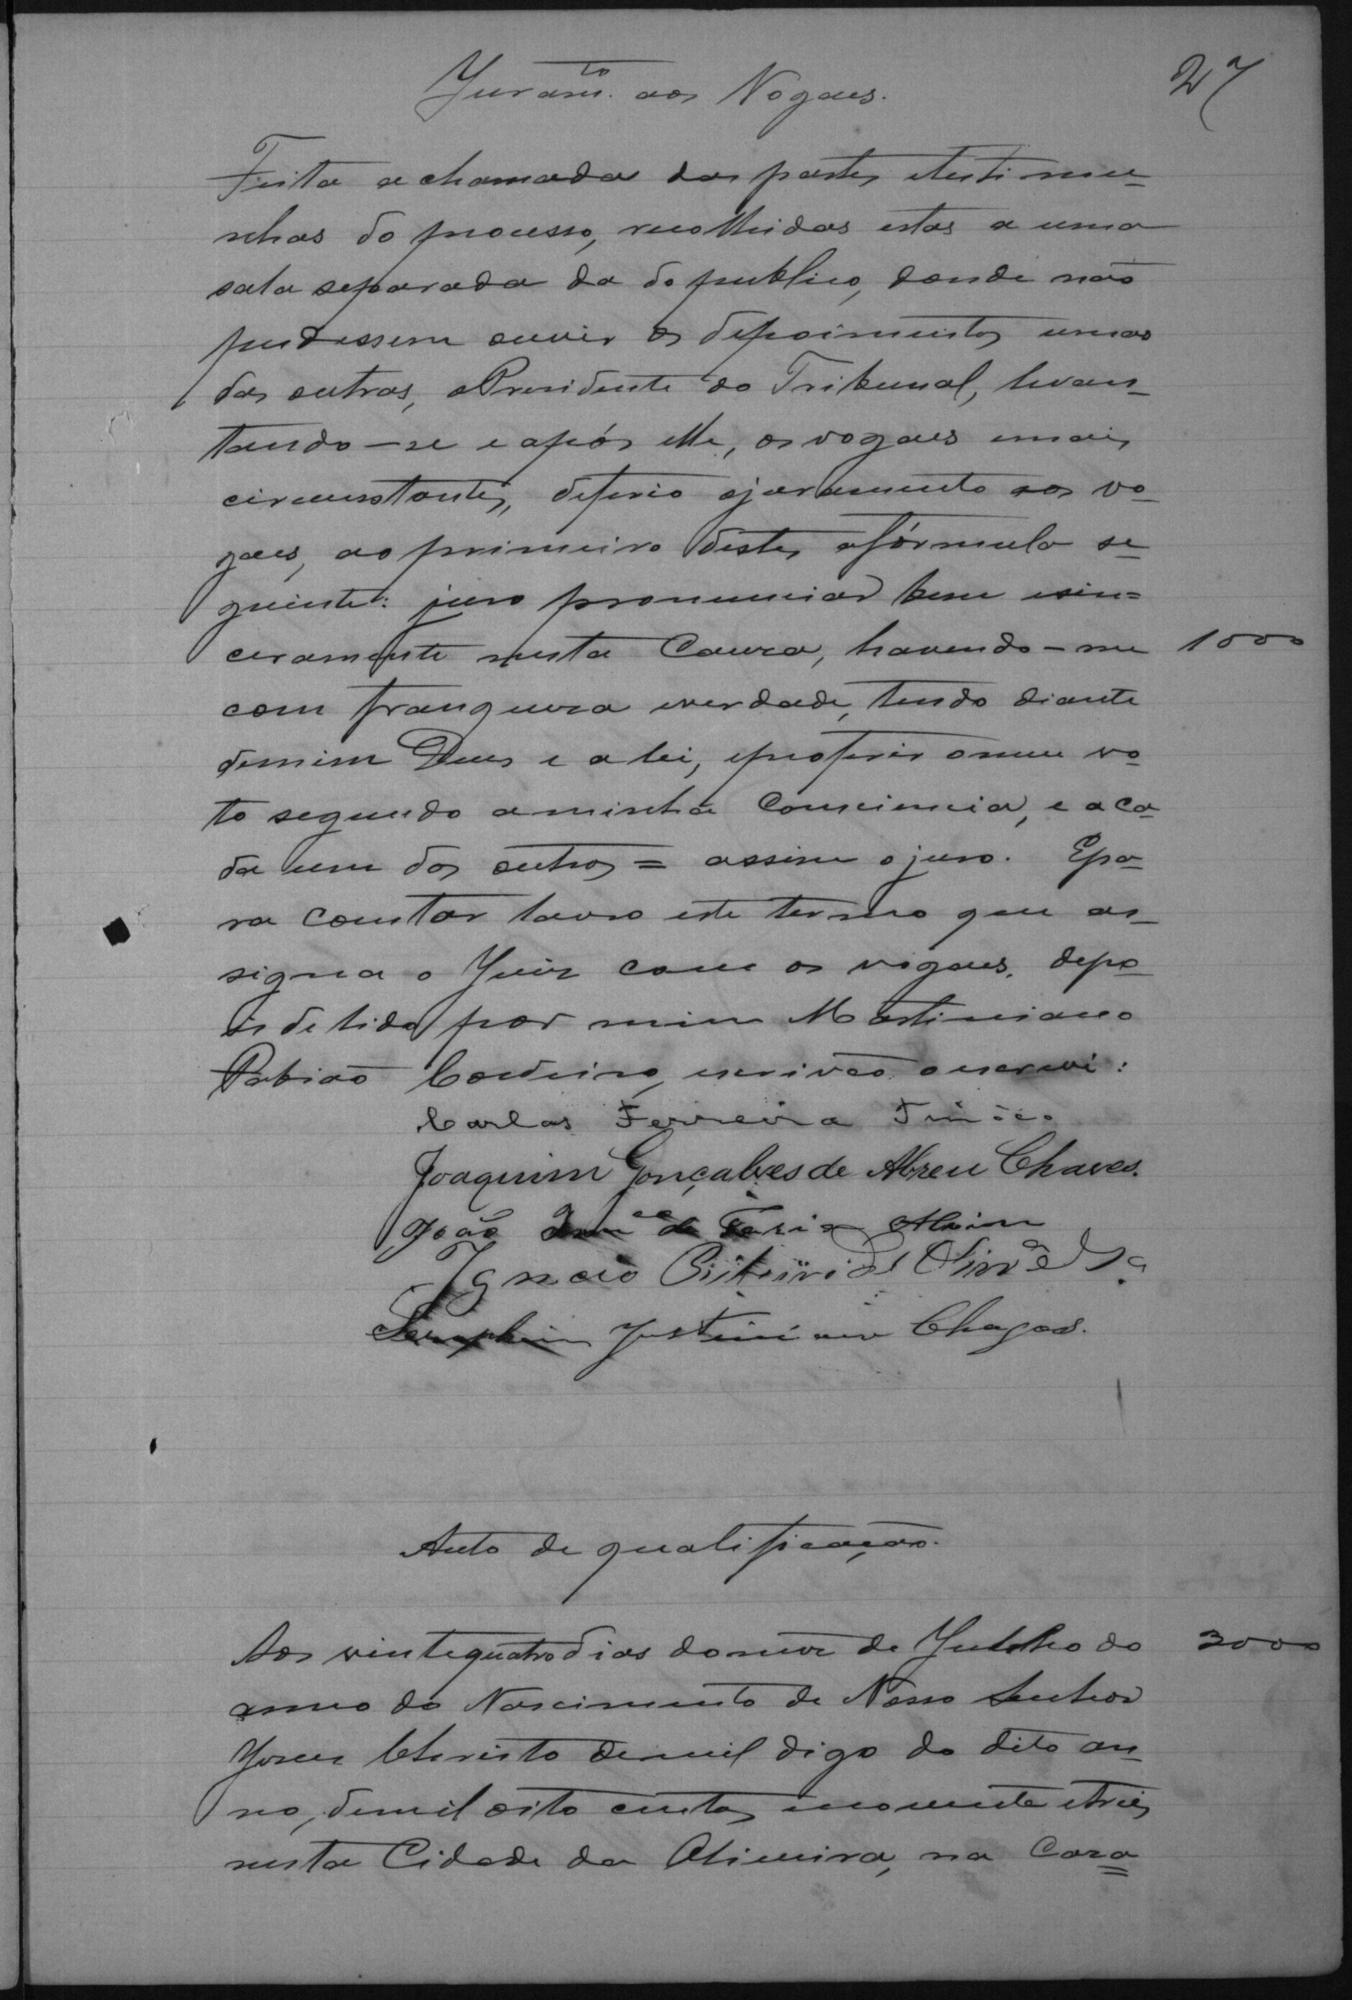 27
Juram.to aos Vogaes.
Feita a chamada das partes e testimu-
nhas do processo, recolhidas estas a uma
sala separada da do publico, donde não
pudessem ouvir os depoimentos umas
das outras, o Presidente do Tribunal, levan-
tando-se e após elle, os vogaes e mais
circumstantes, deferio o juramento aos vo-
gaes, ao primeiro destes a fórmula se-
guinte: juro pronunciar bem e sin=
ceramente nesta Causa, havendo-me 1000
com franqueza e verdade, tendo diante
de mim Deus e a lei, e proferir o meu vo-
to segundo a minha Consciencia, e a ca-
da um dos outros = assim o juro. E pa-
ra constar lavro este termo que as-
signa o Juiz com os vogaes, depo-
is de lido por mim Martiniano
Cordeiro, escrivão o escrevi:
Carlos Ferreira Tinôco
Joaquim Gonçalves de Abreu Chaves.
João de Faria Alvim
Ignacio de Oliv.ra
Seraphim Justiniano Chagas.
Auto de qualificação.
Aos vinte quatro dias do mez de Julho do 3000
anno do Nascimento de Nosso Senhor
Jesus Christo de mil digo do dito an-
no, de mil oito centos e noventa e tres,
nesta Cidade da Oliveira, na Casa